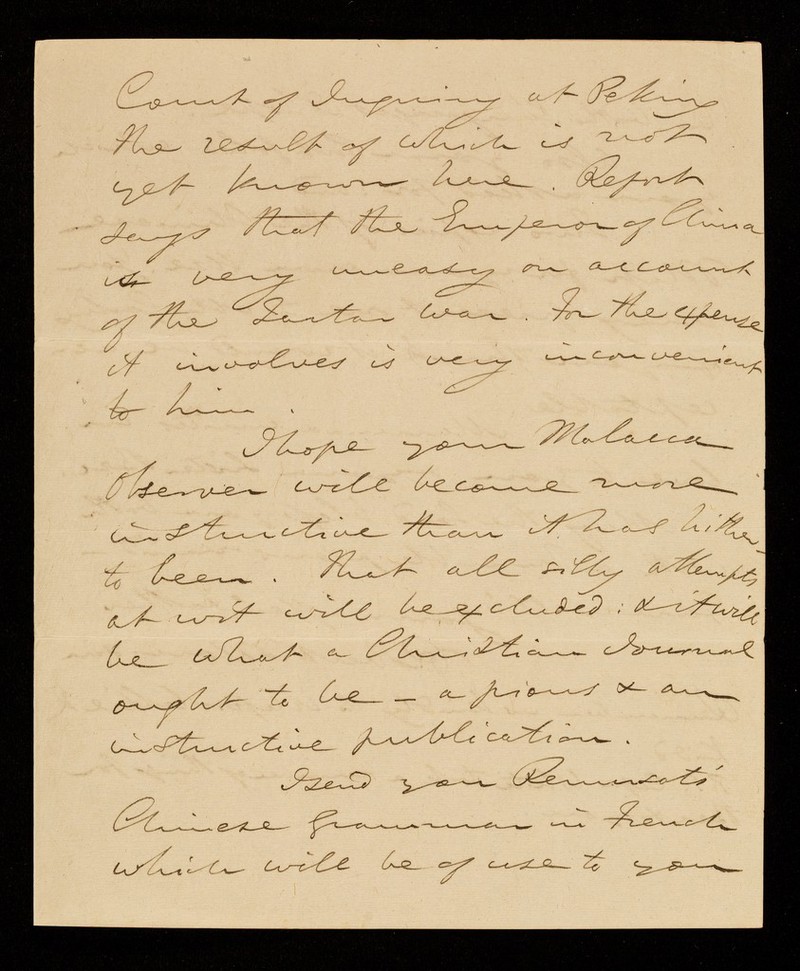 Court of Inquiry at Peking
the result of which is not
yet known here. Report
says that the Emperor of China
is very uneasy on account
of the Tartar war. For the expense
it involves is very inconvenient
to him.
I hope your Malacca
Observer will become more
instructive than it has hither-
to been. That all silly attempts
at wit will be excluded: & it will
be what a Christian Journal
ought to be - a pious & an
instructive publication.
I send you Remusats'
Chinese Grammar in French
which will be of use to you